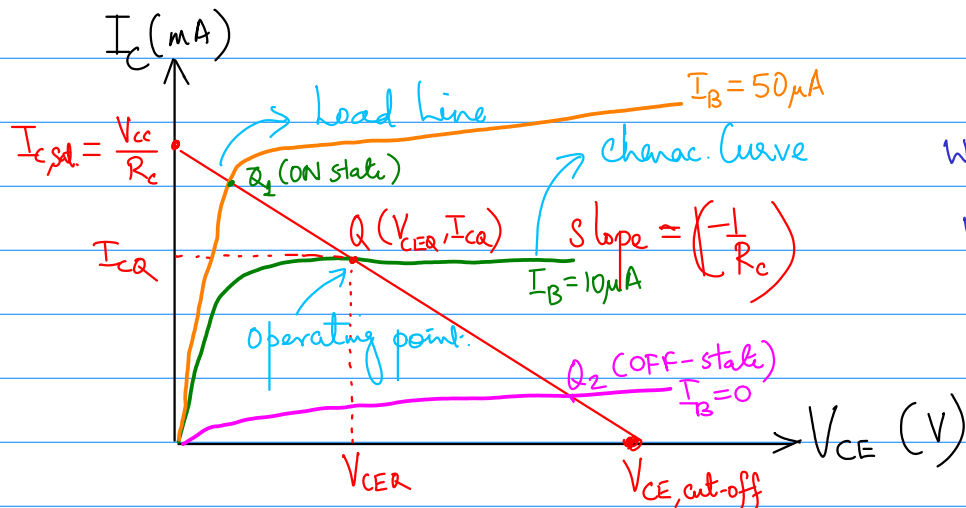 I_C (mA)
I_B = 50μA
Load Line
I_C,sat. = V_CC/R_C
Charac. Curve
Q_1 (ON state)
Q (V_CEQ, I_CQ)
slope = (-1/R_C)
I_CQ
I_B = 10μA
operating point.
Q_2 (OFF-state)
I_B = 0
V_CE (V)
V_CEQ
V_CE, cut-off